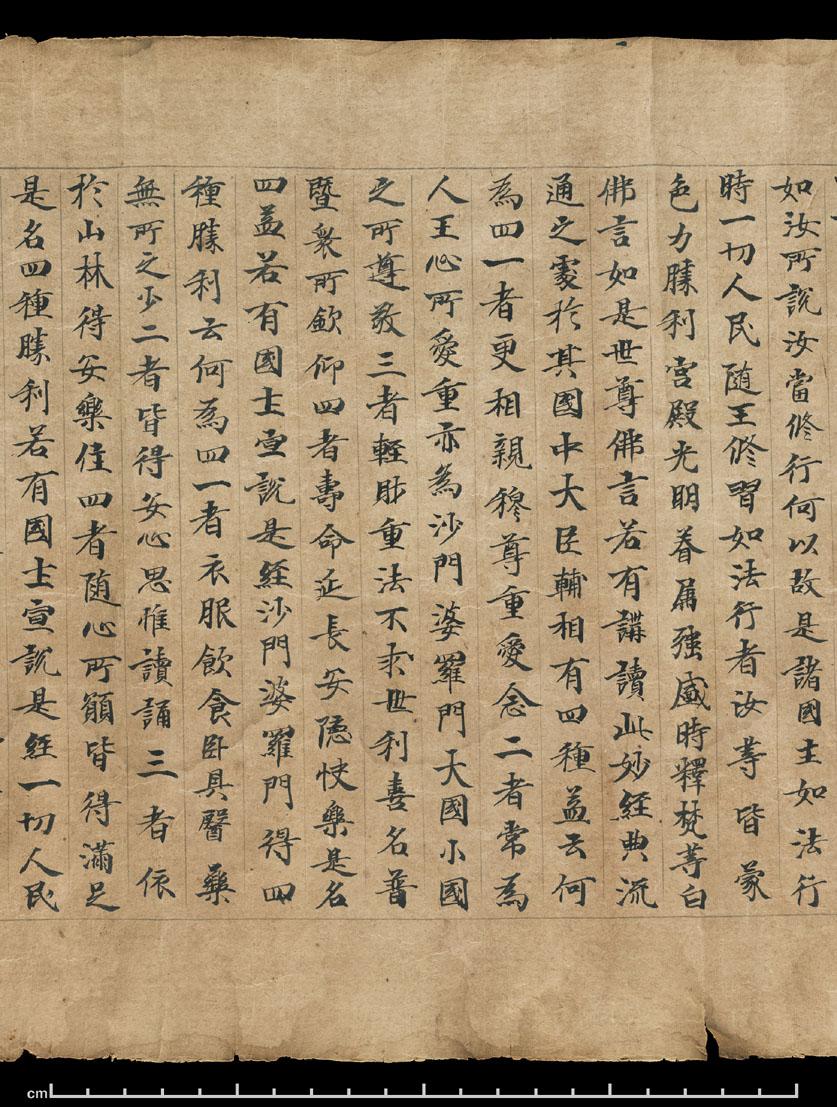 如汝所說汝當修行何以故是諸國主如法行
時一切人民隨王修習如法行者汝等皆蒙
色力勝利宮殿光明眷属強盛時釋梵等白
佛言如是世尊佛言若有講讀此妙經典流
通之處於其國中大臣輔相有四種益云何
為四一者更相親穆尊重愛念二者常為
人王心所愛重亦為沙門婆羅門大國小國
之所遵敬三者輕財重法不求世利善名普
暨衆所欽仰四者壽命延長安隱快樂是名
四益若有國主宣說是經沙門婆羅門得四
種勝利云何為四一者衣服飲食卧具醫藥
無所乏少二者皆得安心思惟讀誦三者依
於山林得安樂住四者隨心所願皆得滿足
是名四種勝利若有國主宣說是經一切人民